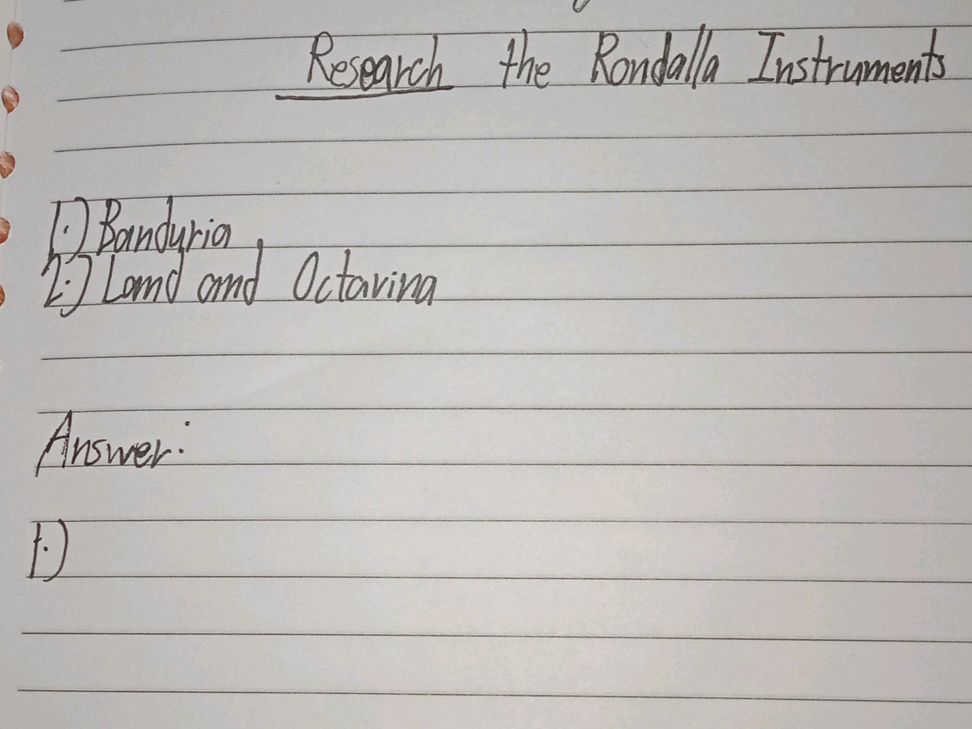 Research the Rondalla Instruments
1.) Banduria
2.) Laud and Octavina
Answer:
1.)